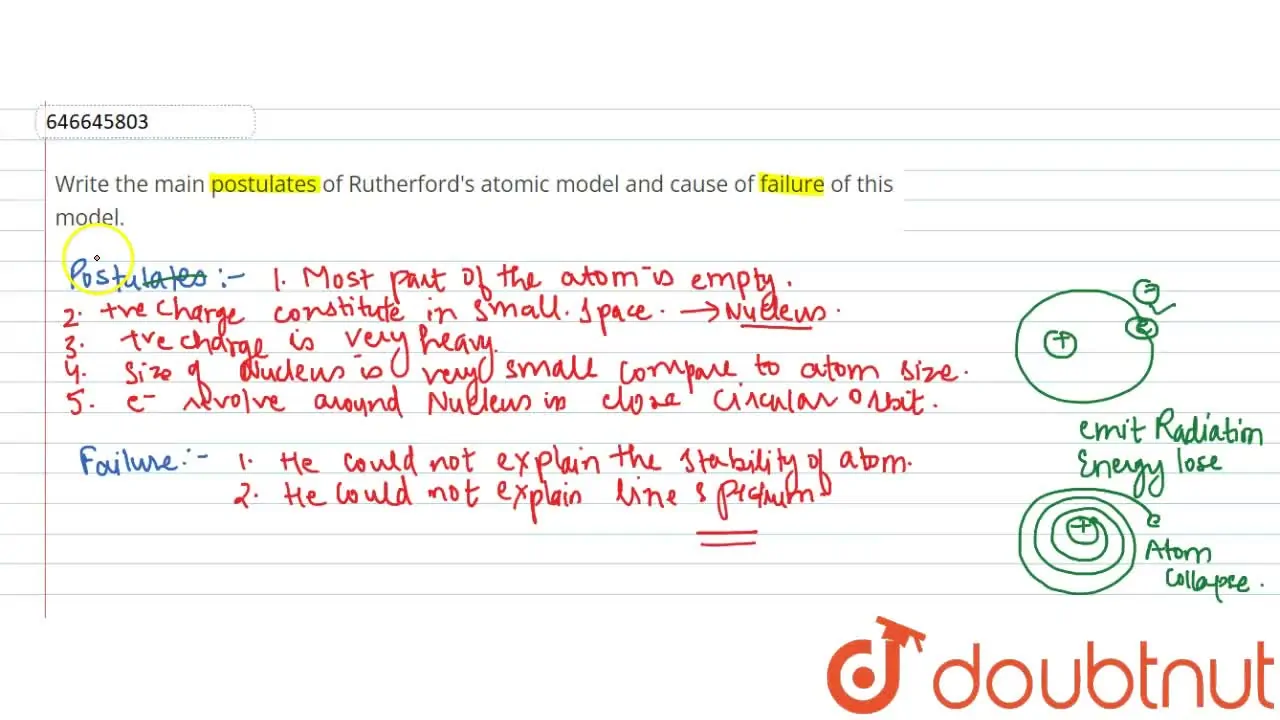 646645803
Write the main postulates of Rutherford's atomic model and cause of failure of this
model.
Postulates :- 1. Most part of the atom is empty.
2. +ve charge constitute in small space. → Nucleus.
3. +ve charge is very heavy.
4. Size of Nucleus is very small compare to atom size.
5. e- revolve around Nucleus in close circular orbit.
Failure :- 1. He could not explain the stability of atom.
2. He could not explain line spectrum
+
e
emit Radiation
Energy lose
+
e
Atom
collapse.
doubtnut